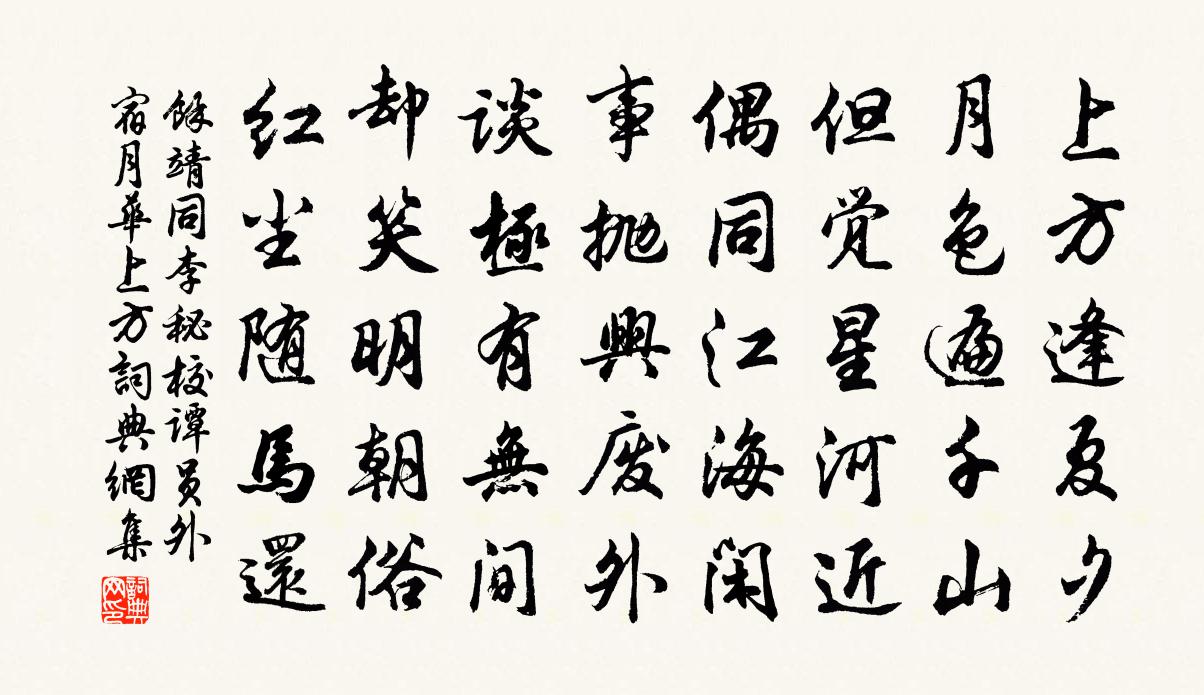 上方逢夏夕
月色遍千山
但觉星河近
偶同江海闲
事抛興废外
谈極有無间
却笑明朝俗
红尘随馬還
餘靖同李秘校谭员外
宿月華上方詞典網集
詞典網印